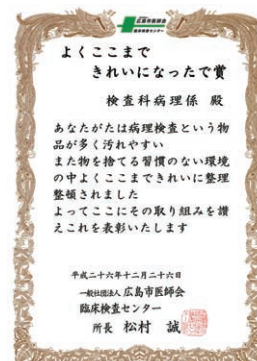 広島市医師会
臨床検査センター
よくここまで
きれいになったで賞
検査科病理係 殿
あなたがたは病理検査という物
品が多く汚れやすい
また物を捨てる習慣のない環境
の中よくここまできれいに整理
整頓されました
よってここにその取り組みを讃
えこれを表彰いたします
平成二十六年十二月二十六日
一般社団法人 広島市医師会
臨床検査センター
所長 松村 誠